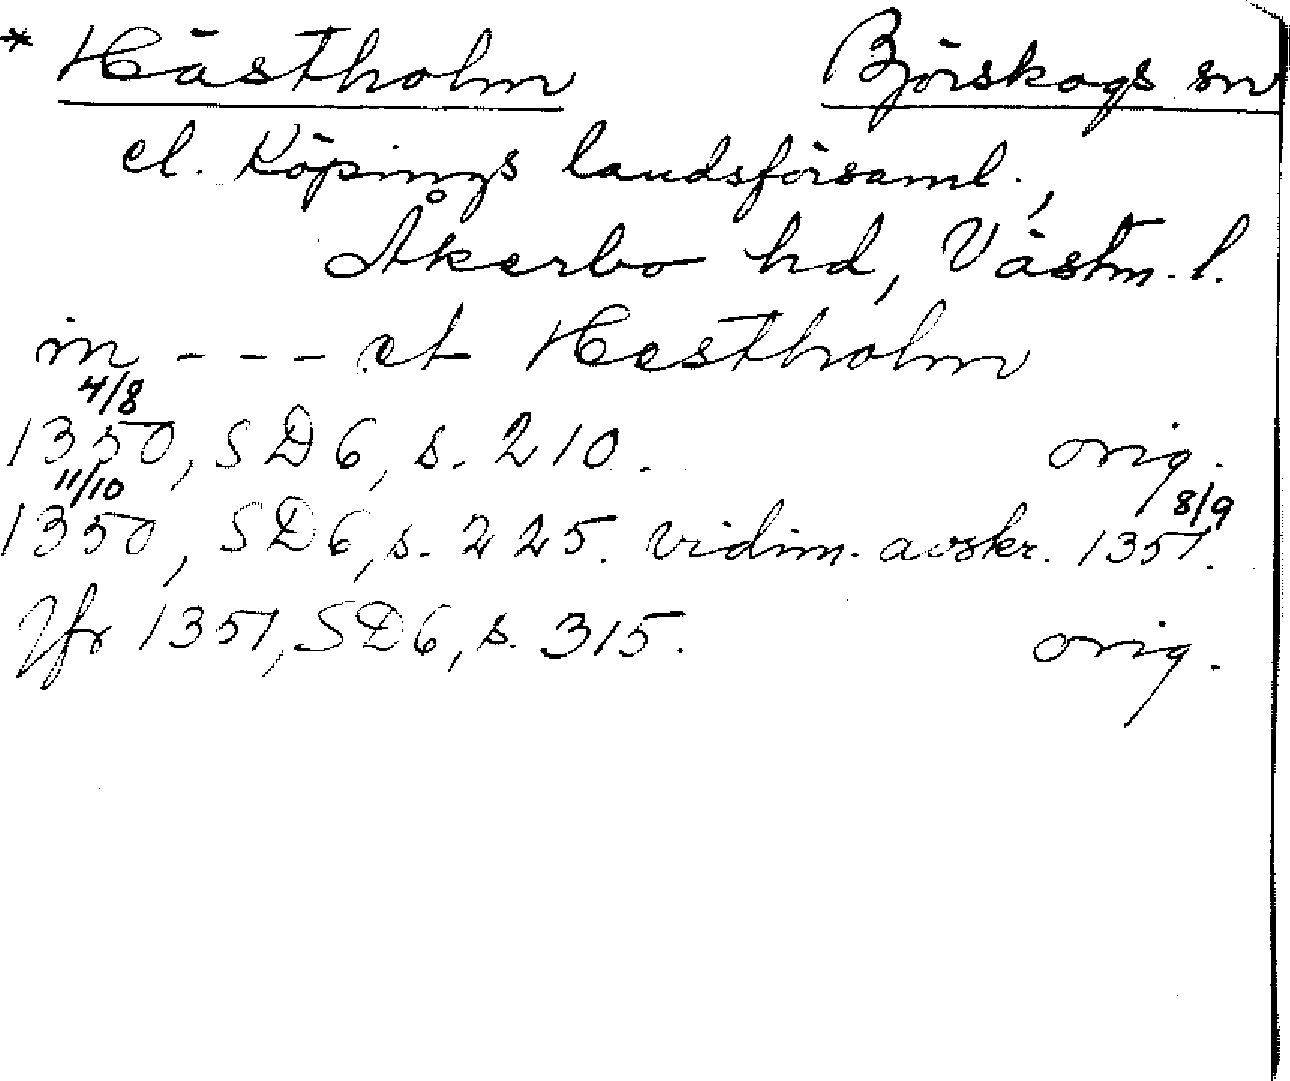 * Hästholm Björskogs sn
el. Köpings landsförsaml.,
Åkerbo hd, Västm. l.
in - - - et Hestholm
4/8
1350, SD6, s. 210. orig.
11/10 8/9
1350, SD6, s. 225. vidim. avskr. 1351.
Jfr 1351, SD6, s. 315. orig.